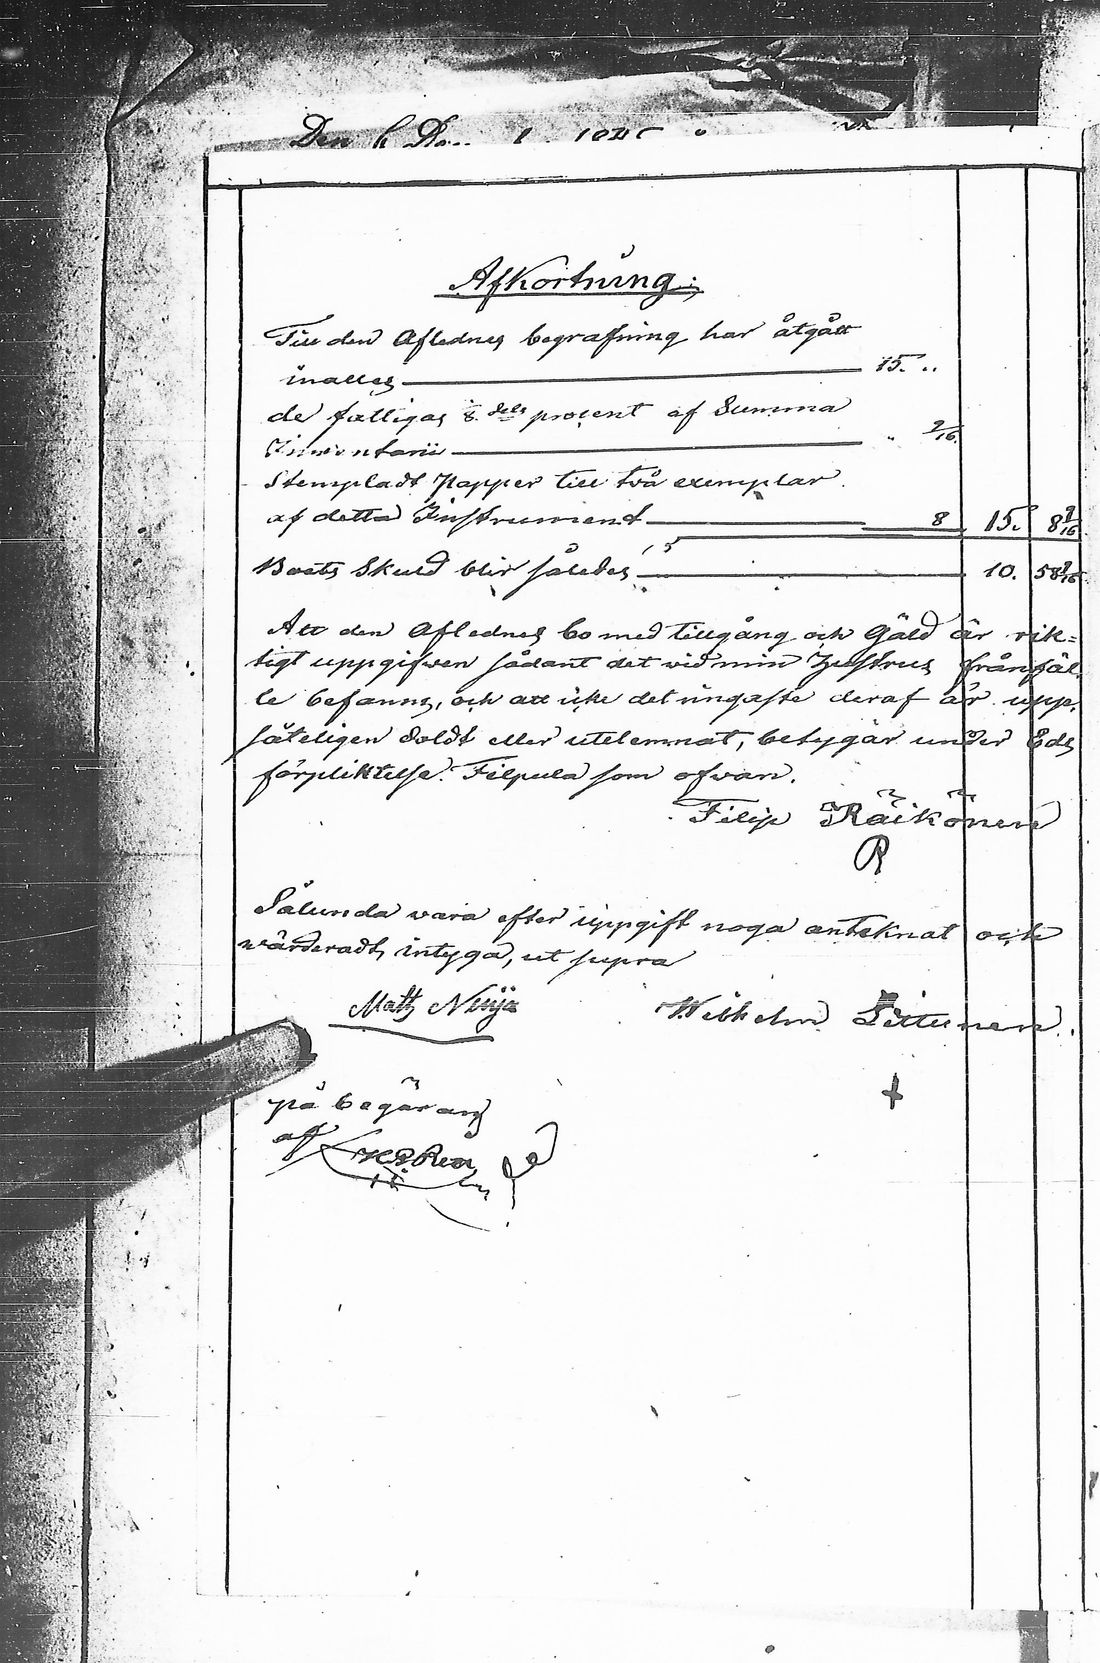 Afkortning:
Till den Aflednes begrafning har åtgått
inalles 15. "
de fattigas 1/8 dels procent af Summa
Inventarii " 9/16.
Stempladt Papper till två exemplar
af detta Instrument 8 15. 8 9/16
Boets Skuld blir således 10. 58 9/16
Att den Aflednes bo med tillgång och Gäld är rik=
tigt uppgifwen sådant det wid min Hustrus frånfäl-
le befanns, och att icke det ringaste deraf är upp-
såteligen doldt eller utelemnat, betygar under Eds
förpliktelse. Filpula som ofwan.
Filip Räikönen
R
Sålunda vara efter uppgift noga anteknat och
wärderadt, intyga, ut supra
Matts Wilhelm
+
på begäran
af